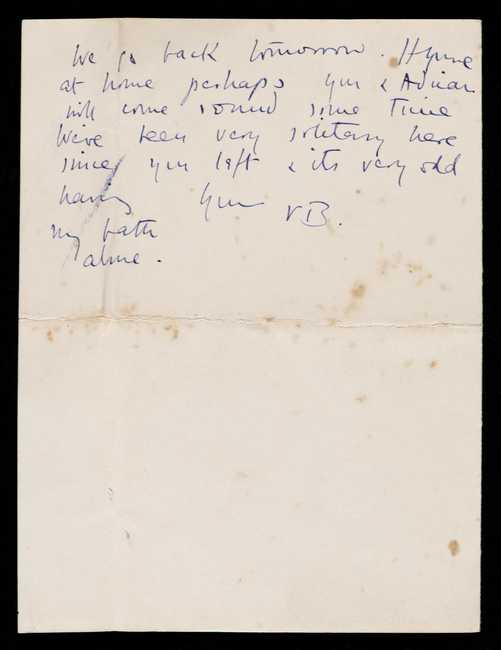 We go back tomorrow. If you're
at home perhaps you & Adrian
will come round some time
We've been very solitary here
since you left & its very odd
having Your VB.
my bath
alone.